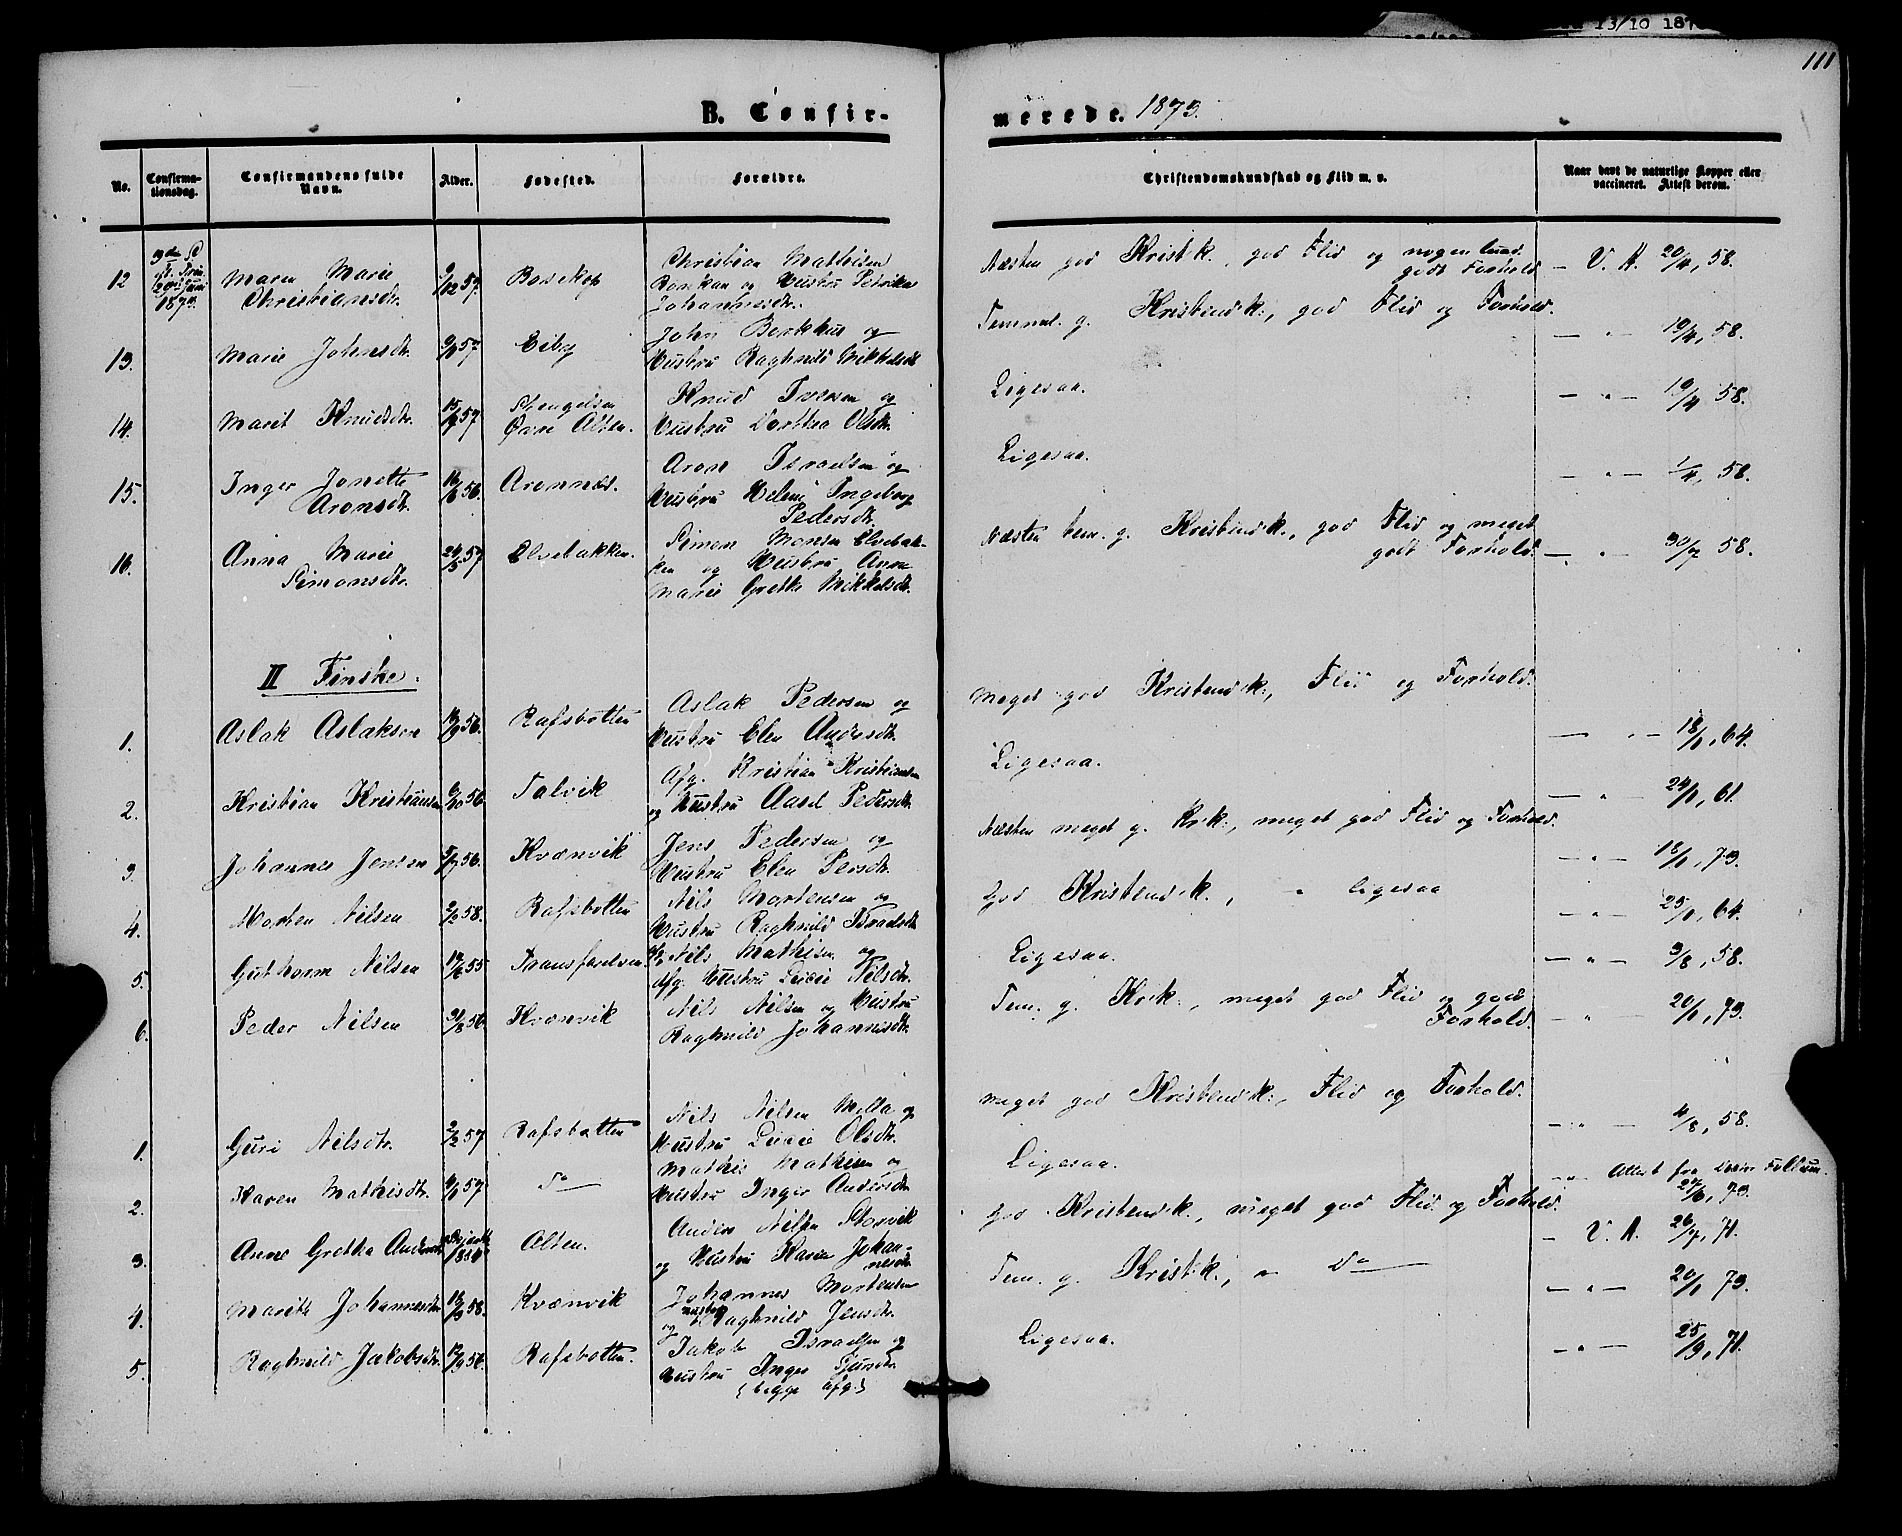 13/10 187
111
B. Confirmerede. 1873.
No. Confirmationsdag. Confirmandens fulde Navn. Alder. Fødested. Forældre. Christendomskundskab og Flid m. v. Naar havt de naturlige Kopper eller vaccineret. Attest derom.
12 1873. Maren Marie Christiansdtr. 9/12 57. Bosekop Christian Mathisen
og Hustru Petrikka Johannesdtr. Næsten god Kristk., god Flid og nogenlunde godt Forhold. V. A. 20/4, 58.
13. Marie Johnsdtr. Eiby John Berkhus og
Hustru Raghnild Mikkelsdtr. Temmel. g. Kristendk., god Flid og Forhold. — " — 19/4, 58.
14. Marit Knudsdtr. 15/9 57 Stengelsen Øvre Alten. Knud Iversen og
Hustru Dorthea Olsdtr. Ligesaa. — " — 19/4 58.
15. Inger Jonette Aronsdtr. Aronnæs. Aron Israelsen og
Hustru Helene Ingeborg Pedersdtr. Ligesaa. — " — 1/4, 58.
16. Anna Marie Simonsdtr. 24/5 57 Elvebakken. Simon Monsen Elvebakken og Hustru Anne
Marie Grethe Mikkelsdtr. Næsten tem. g. Kristendk., god Flid og meget godt Forhold. — " — 30/7 58.
II Finske.
1. Aslak Aslaksen 19/9 56. Rafsbotten Aslak Pedersen og
Hustru Elen Andersdtr. Meget god Kristendk., Flid og Forhold. — " — 18/1, 64.
2. Kristian Kristiansen 6/10 56. Talvik Afg. Kristian Kristiansen
og Hustru Aasel Pedersdtr. Ligesaa. — " — 24/1, 61.
3. Johannes Jensen 5/7 56. Kvænvik Jens Pedersen og
Hustru Elen Persdtr. Næsten meget g. Krk., meget god Flid og Forhold. — " — 18/1, 73.
4. Morten Nilsen 2/2 58. Rafsbotten Nils Mortensen og
Hustru Raghnild Israelsdtr. God Kristendk., " ligesaa — " — 25/1, 64.
5. Guthorm Nilsen Tranfarelven Nils Mathisen og
Afg. Hustru Nilsdtr. Ligesaa. — " — 3/8, 58.
6. Peder Nilsen 31/3 56. Kvænvik Nils Nilsen og Hustru
Raghnild Johannesdtr. Tem. g. Krk., meget god Flid og godt Forhold. — " — 20/1, 73.
1. Guri Nilsdtr. 2/2 57 Rafsbotten Nils Nilsen og
Hustru Olsdtr. Meget god Kristendk., Flid og Forhold. — " — 4/8, 58.
2. Karen Mathisdtr. 57 do — Mathis Mathisen og
Hustru Inger Andersdtr. Ligesaa. " Attest fra 27/6, 73.
3. Anne Grethe Andersdtr. Alten. Anders Nilsen Storvik
og Hustru Karen Johannesdtr. God Kristendk., meget god Flid og Forhold. — V. A. 26/7, 71.
4. Marith Johannesdtr. 18/3 58. Kvænvik Johannes Mortensen
og Hustru Raghnild Jensdtr. Tem. g. Kristk., " do — " — 20/1, 73.
5. Raghnild Jakobsdtr. 56. Rafsbotten. Jakob Israelsen og
Hustru Inger
(begge afg.) Ligesaa. — " — 25/9, 71.